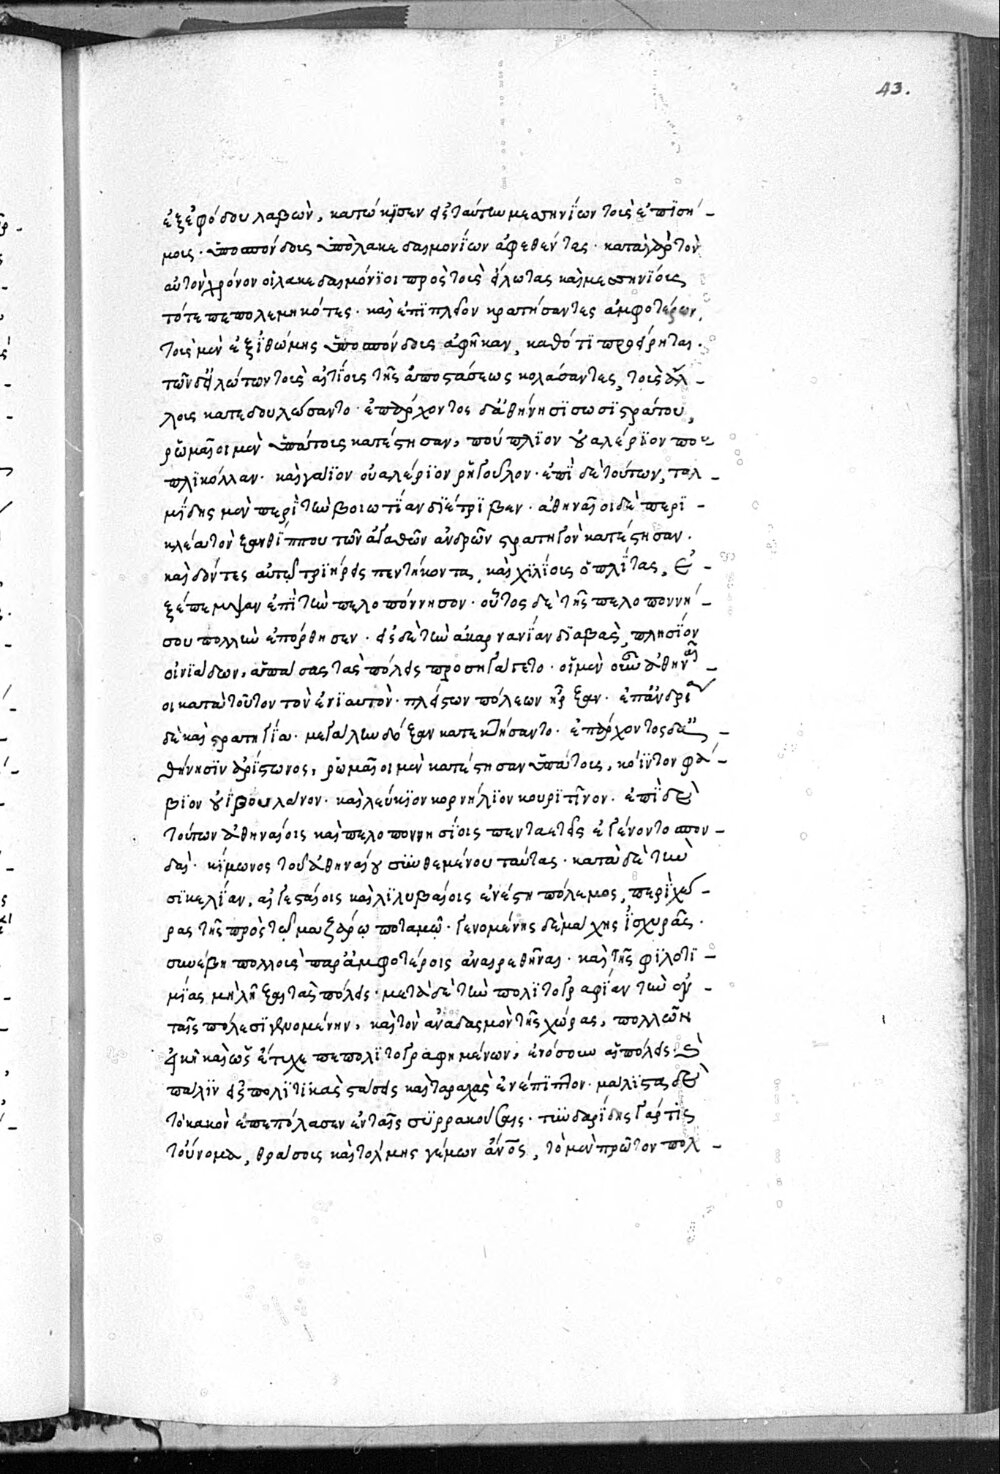 43.
ἐξ ἐφόδου λαβὼν, κατώκισεν εἰς ταύτην μεσσηνίων τοὺς ἐπισή-
μοις· ὑποσπόνδους ὑπὸ λακεδαιμονίων ἀφεθέντας· κατὰ γὰρ τὸν
αὐτὸν χρόνον οἱ λακεδαιμόνιοι πρὸς τοὺς εἵλωτας καὶ μεσσηνίους
τότε πεπολεμηκότες· καὶ ἐπὶ πλεῖον κρατήσαντες ἀμφοτέρων,
τοὺς μὲν ἐξ ἰθώμης ὑποσπόνδους ἀφῆκαν, καθότι προείρηται·
τῶν δ' εἱλώτων τοὺς αἰτίους τῆς ἀποστάσεως κολάσαντες, τοὺς ἄλ-
λους κατεδουλώσαντο· ἐπ' ἄρχοντος δ' ἀθήνησι σωσιστράτου,
ῥωμαῖοι μὲν ὑπάτους κατέστησαν, πούπλιον οὐαλέριον που-
πλικόλλαν· καὶ γαϊον οὐαλέριον ῥήγουλον· ἐπὶ δὲ τούτων, τολ-
μίδης μὲν περὶ τὴν βοιωτίαν διέτριβεν· ἀθηναῖοι δὲ περι-
κλέα τὸν ξανθίππου τῶν ἀγαθῶν ἀνδρῶν στρατηγὸν κατέστησαν·
καὶ δόντες αὐτῷ τριήρεις πεντήκοντα, καὶ χιλίους ὁπλίτας, ἐ-
ξέπεμψαν ἐπὶ τὴν πελοπόννησον· οὗτος δὲ τῆς πελοποννή-
σου πολλὴν ἐπόρθησεν· εἰς δὲ τὴν ἀκαρνανίαν διαβὰς, πλησίον
οἰνιαδων, ἁπάσας τὰς πόλεις προσηγάγετο· οἱ μὲν οὖν ἀθηναῖ-
οι κατὰ τοῦτον τὸν ἐνιαυτὸν· πλείστων πόλεων ἦρξαν· ἐπ' ἀνδρία
δὲ καὶ στρατηγία· μεγάλην δόξαν κατεκτήσαντο· ἐπ' ἄρχοντος δὲ ἀ-
θήνησιν ἀρίστωνος, ῥωμαῖοι μὲν κατέστησαν ὑπάτους, κόϊντον φά-
βιον οὐιβουλανον· καὶ λεύκιον κορνήλιον κουριτῖνον· ἐπὶ δὲ
τούτων ἀθηναίοις καὶ πελοποννησίοις πενταετεῖς ἐγένοντο σπον-
δαὶ· κίμωνος τοῦ ἀθηναίου συνθεμένου ταύτας· κατὰ δὲ τὴν
σικελίαν, αἰγεσταίοις καὶ λιλυβαίοις ἐνέστη πόλεμος, περὶ χώ-
ρας τῆς πρὸς τῷ μαζάρῳ ποταμῷ· γενομένης δὲ μάχης ἰσχυρᾶς·
συνέβη πολλοὺς παρ' ἀμφοτέροις ἀναιρεθῆναι· καὶ τῆς φιλοτι-
μίας μὴ λῆξαι τὰς πόλεις· μετὰ δὲ τὴν πολιτογραφίαν τὴν ἐν
ταῖς πόλεσι γενομένην, καὶ τὸν ἀναδασμὸν τῆς χώρας, πολλῶν
εἰκῆ καὶ ὡς ἔτυχε πεπολιτογραφημένων, ἐνόσουν αἱ πόλεις· καὶ
πάλιν εἰς πολιτικὰς στάσεις καὶ ταραχὰς ἐνέπιπτον· μάλιστα δὲ
τὸ κακὸν ἐπεπόλασεν ἐν ταῖς συρρακούσαις· τυνδαρίδης γάρ τις
τοὔνομα, θράσους καὶ τόλμης γέμων ἄνος, τὸ μὲν πρῶτον πολ-